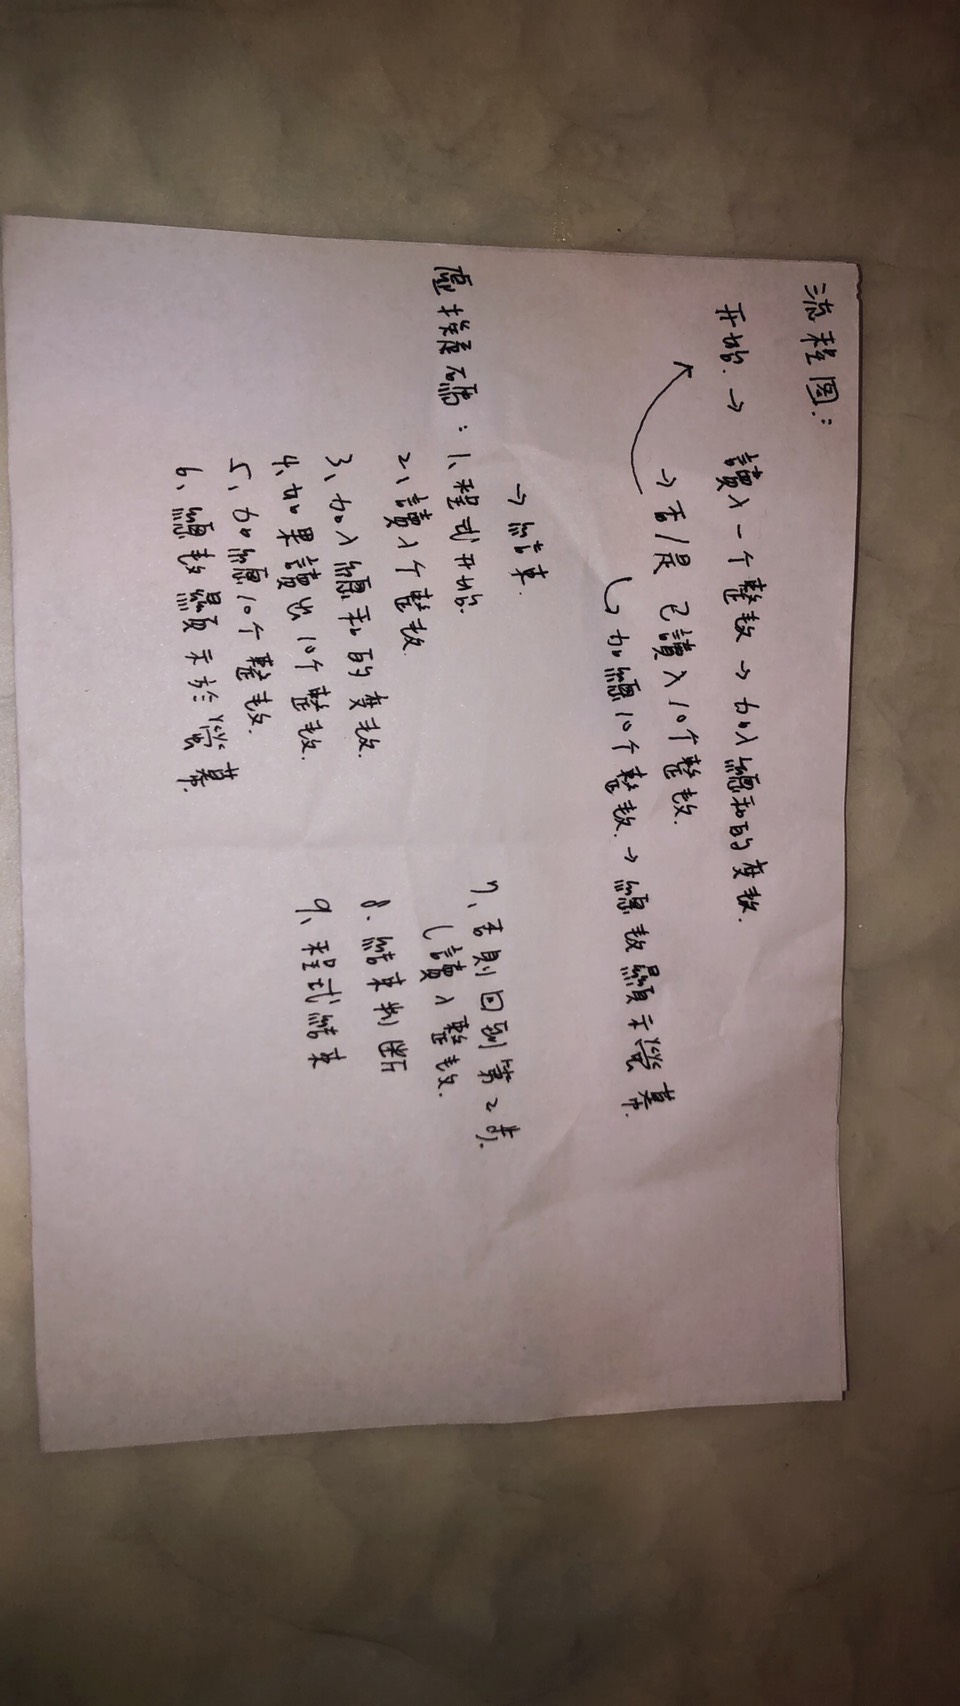 流程图:
开始. → 讀入一个整数 → 加入總和的变数.
→ 否/是 已讀入10个整数.
↳ 加總10个整数. → 總数顯示螢幕.
→ 結束.
虛擬碼: 1、程式开始.
2、讀入个整数.
3、加入總和的变数.
4、如果讀出10个整数.
5、加總10个整数.
6、總数顯示於螢幕.
7、否則回到第2步.
(讀入整数.
8. 結束判断
9、程式結束